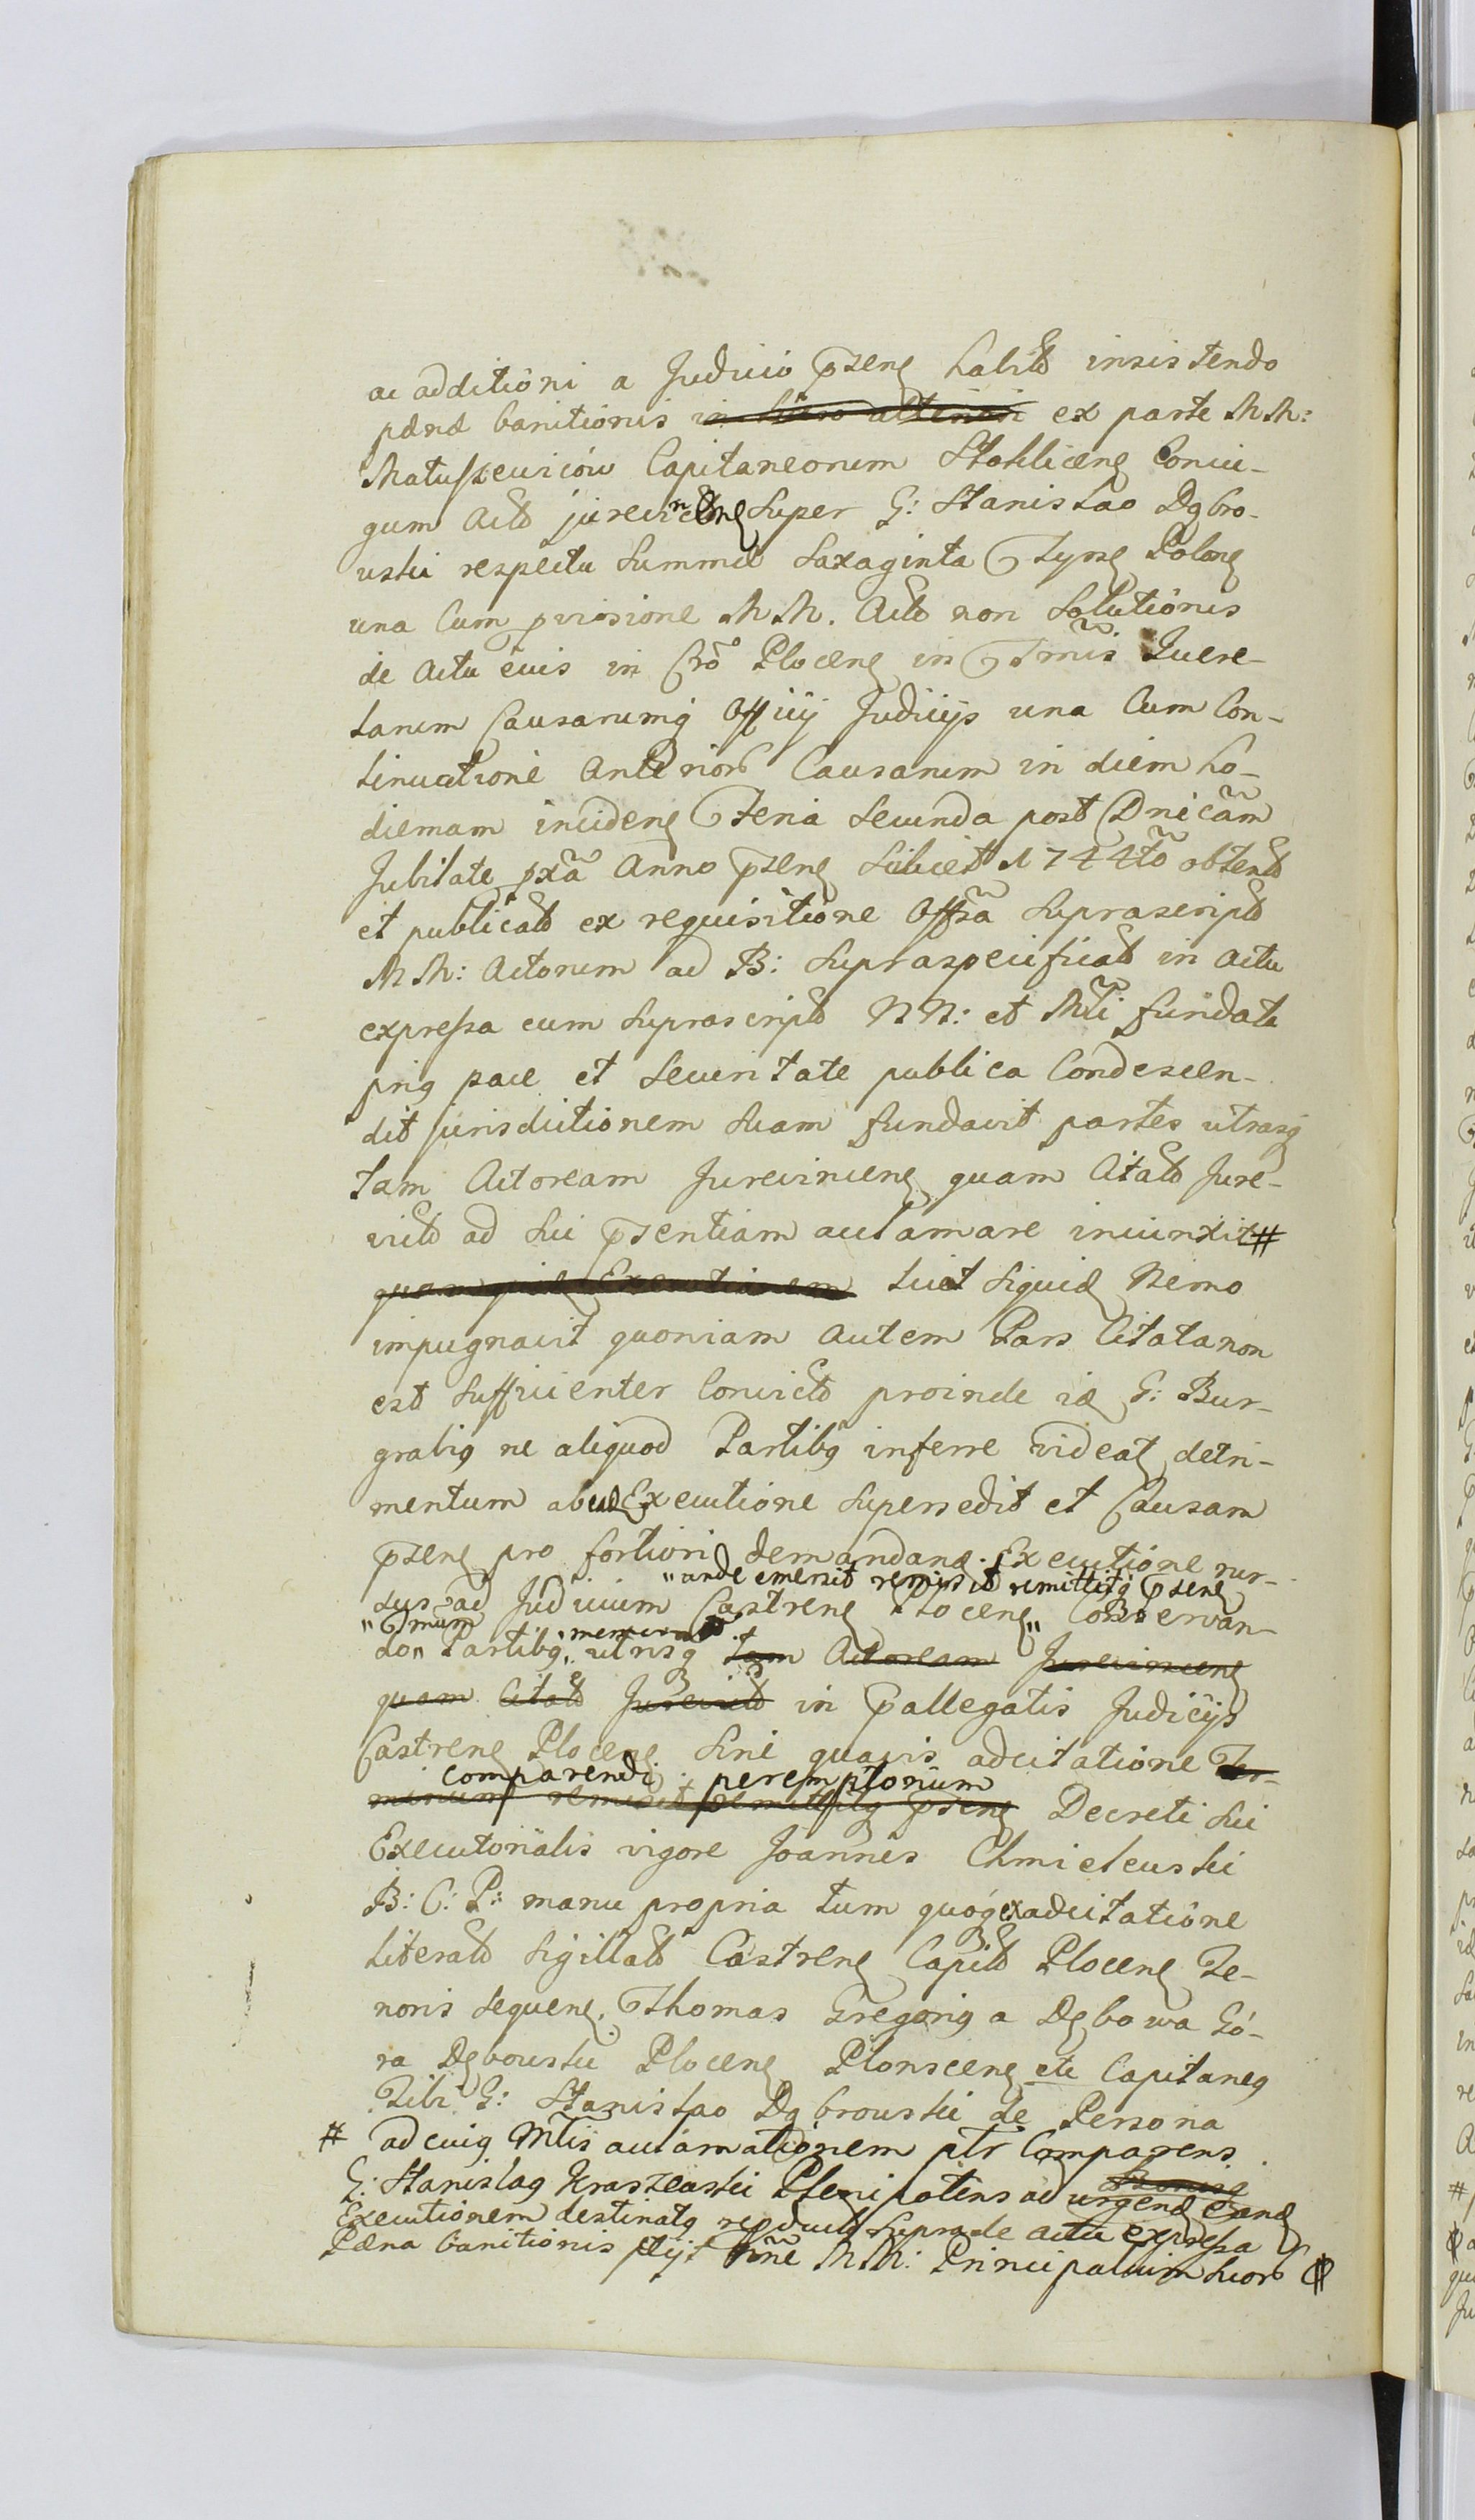 ac additioni a Judicio pseng habito insistendo
pænæ banitionis in ex parte MM:
Matuszeuiciow Capitaneorum Stokliceng Coniu-
gum Acto jurevinceng Super G: Stanislao Dąbro-
uski respectu Summæ Saxaginta Tynf Polong
una Cum provisione MM. Acto non Solutionis
de Actu euis in Cro Ploceng in Tmis Quere-
larum Causarumq Officij Judicijs una Cum Con-
tinuatione Anterior Causarum in diem ho-
diernam incideng Feria Secunda post Dnicam
Jubilate pxa Anno pseng Scilicet 1744to obtent
et publicat ex requisitione Offsa Suprascript
MM: Actorum ad B: Supraspecificat in Actu
expressa cum Suprascript NN: et Mli fundata
prig pace et Securitate publica Condescen-
dit jurisdictionem Suam fundavit partes utrasq
tam Actoream Jurevinceng quam Citato Jure-
victo ad Sui psentiam acclamare iniunxit #
quampide Executionem licet Siquid Nemo
impugnavit quoniam Autem Pars Citata non
est Sufficienter Convicto proinde id G: Bur-
grabig ne aliquod Partibg inferre videat detri-
mentum ab ead Executione Supersedit et Causam
pseng pro fortiori demandand Executione rur-
"unde emersit remisit remittitq pseng
sus ad Judicium Castreng Ploceng" Conservan-
"Tmum
do" Partibg utrisq tam Actoream Jurevinceng
quam Citato Jurevicto in pallegatis Judicijs
Castreng Ploceng Sine quavis adcitatione Ter-
comparendi peremptorium
minum remisit remittitq pseng Decreti Sui
Executorialis vigore Joannes Chmieleuski
B: C: P: manu propria tum quoq ex adcitatione
literato Sigillato Castreng Capit Ploceng Te-
noris Sequeng. Thomas Gregorig a Dębowa Gó-
ra Dębouski Ploceng Plonsceng etc Capitaneg
Tibi G: Stanislao Dąbrouski de Persona
# ad cuig Mtis aclamationem ptr Comparens
G: Stanislag Kraszeuski Plenipotens ad urgend eand
Executionem destinatg reproduct Supra de actu expressa
Pæna banitionis ptijt Nne MM: Principalium Suor